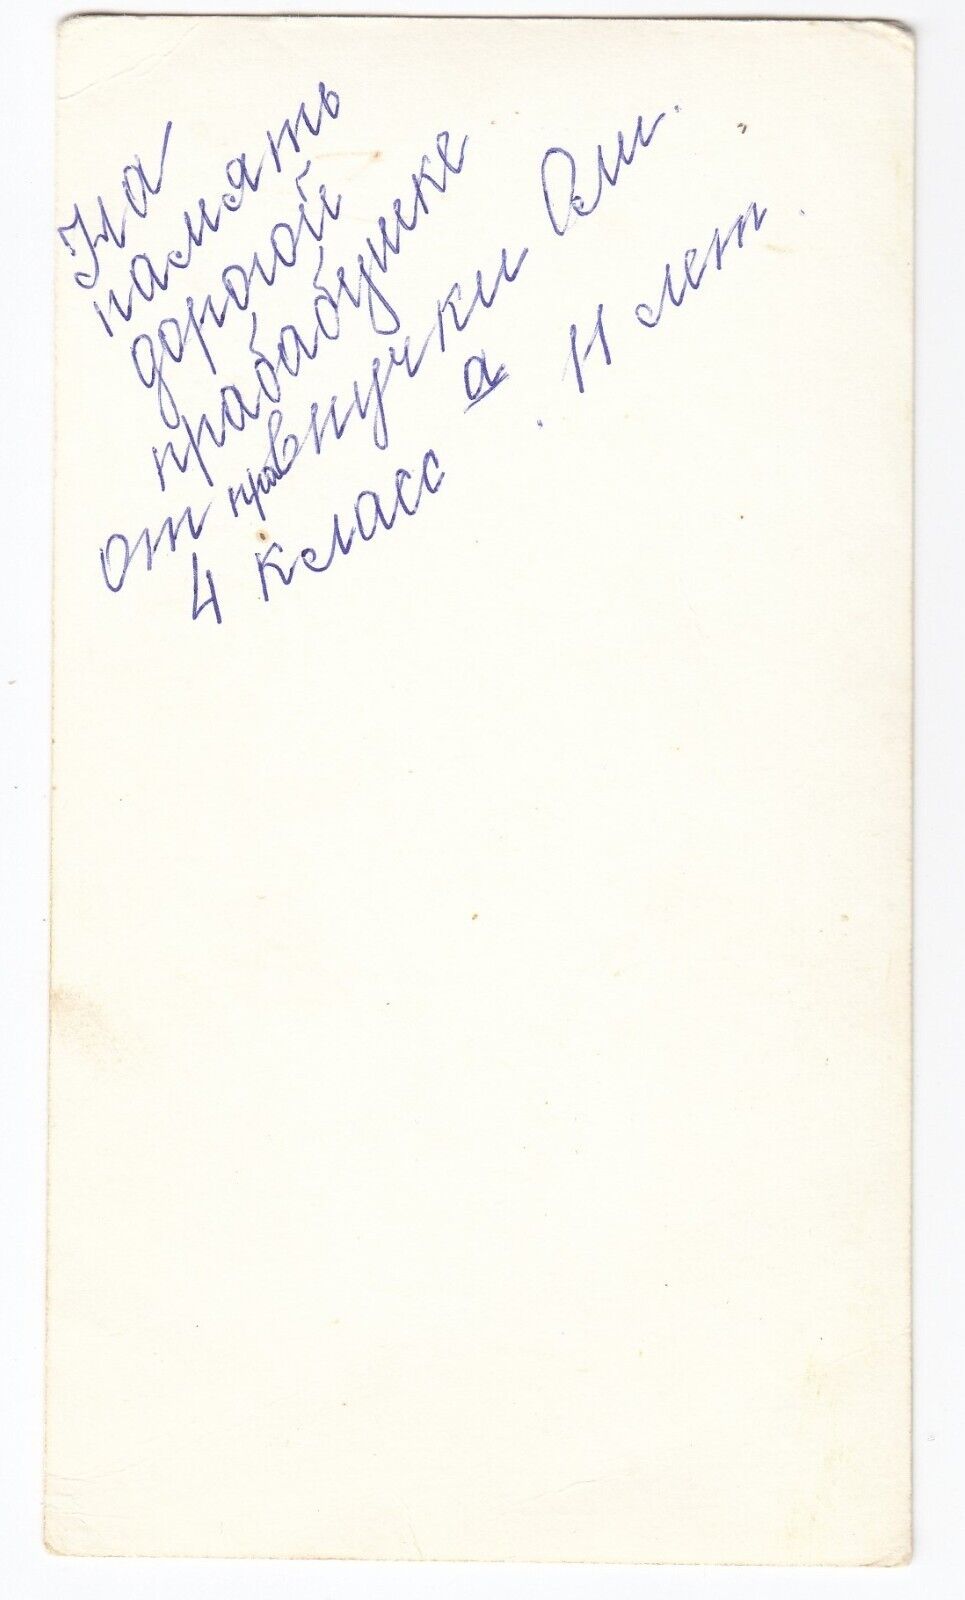 На
память
дорогой
прабабушке
от правнучки Оли.
4 класс а. 11 лет.